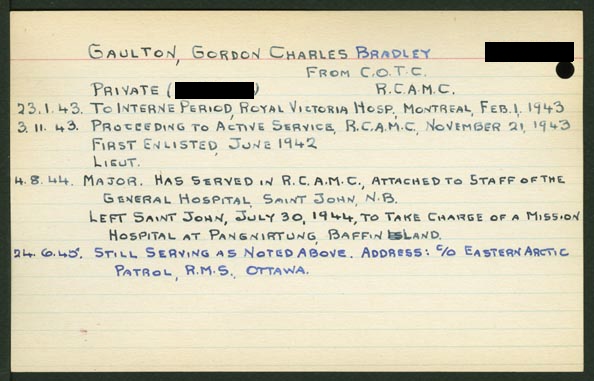 GAULTON, GORDON CHARLES BRADLEY
FROM C.O.T.C.
PRIVATE ( ) R.C.A.M.C.
23.1.43. TO INTERNE PERIOD, ROYAL VICTORIA HOSP, MONTREAL, FEB. 1, 1943
3.11.43. PROCEEDING TO ACTIVE SERVICE, R.C.A.M.C, NOVEMBER 21, 1943
FIRST ENLISTED, JUNE 1942
LIEUT.
4.8.44. MAJOR. HAS SERVED IN R.C.A.M.C., ATTACHED TO STAFF OF THE
GENERAL HOSPITAL, SAINT JOHN, N.B.
LEFT SAINT JOHN, JULY 30, 1944, TO TAKE CHARGE OF A MISSION
HOSPITAL AT PANGNIRTUNG, BAFFIN ISLAND.
24.6.45. STILL SERVING AS NOTED ABOVE. ADDRESS: C/O EASTERN ARCTIC
PATROL, R.M.S., OTTAWA.